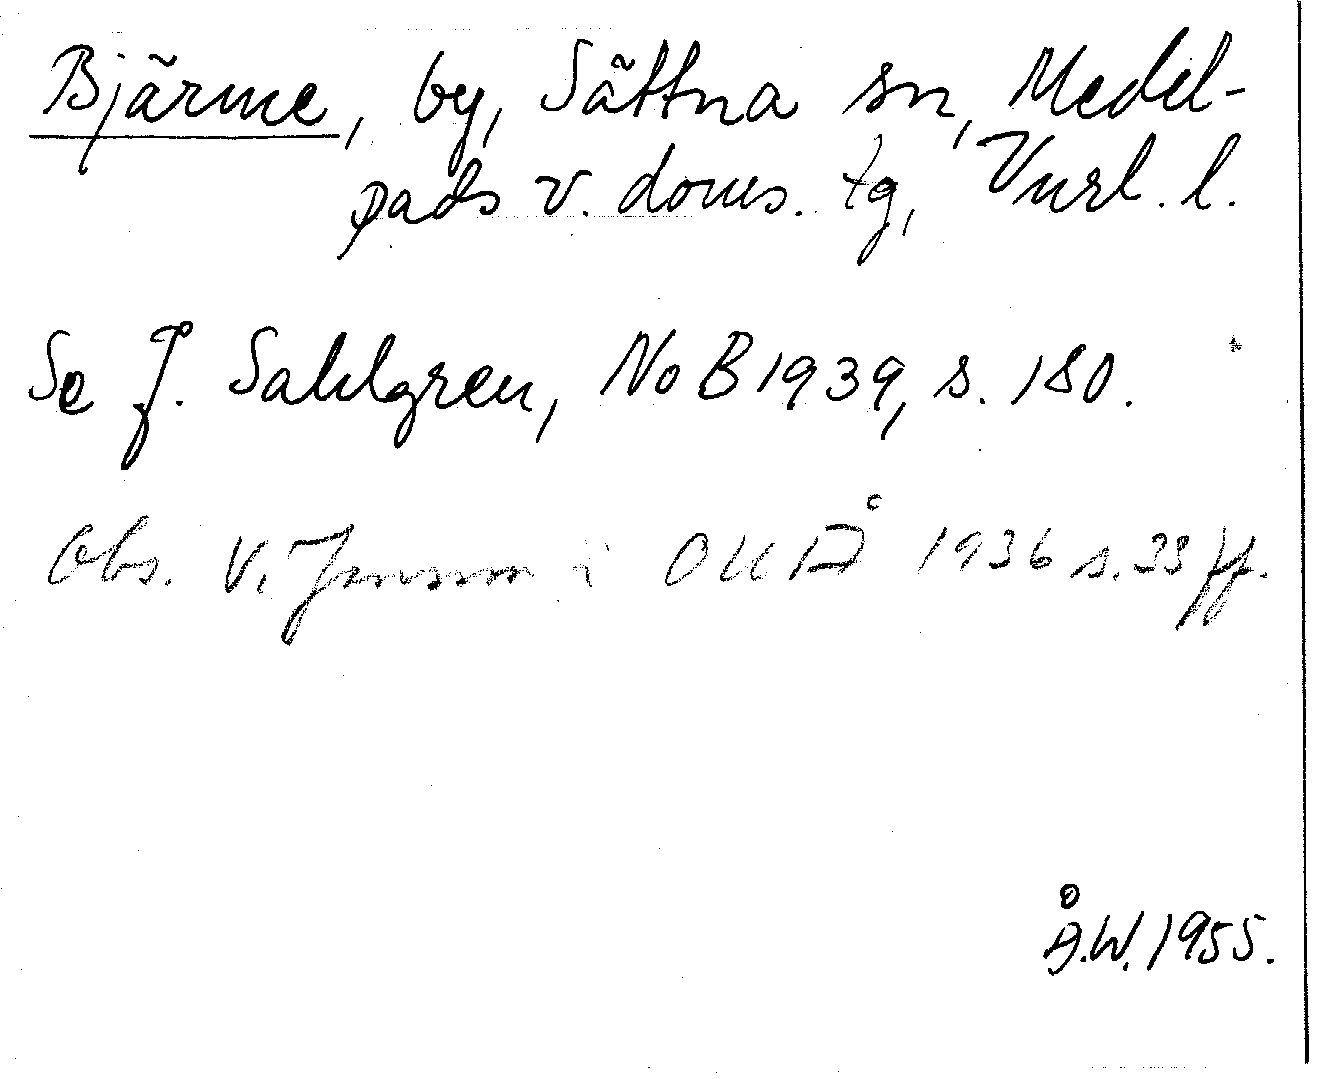 Bjärme, by, Sättna sn, Medel-
pads v. doms. tg, Vnrl. l.
Se J. Sahlgren, NoB 1939, s. 180.
Obs. V. Jansson i OUÅ 1936 s. 33 ff.
Å.W. 1955.